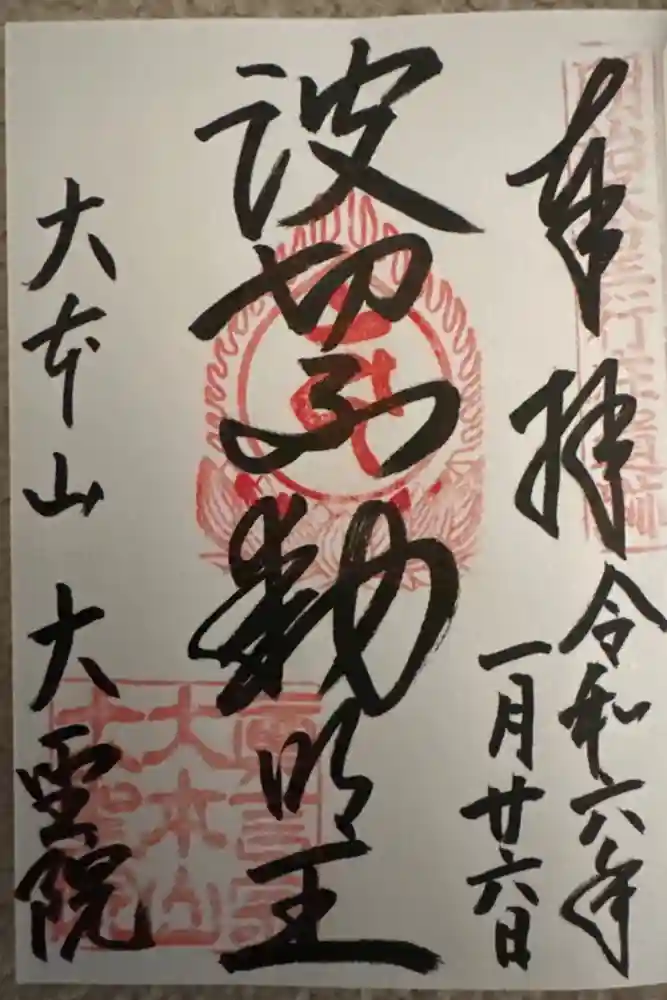 奉拝
令和六年
一月廿六日
波切不動明王
大本山 大聖院
真言宗
大本山
大聖院